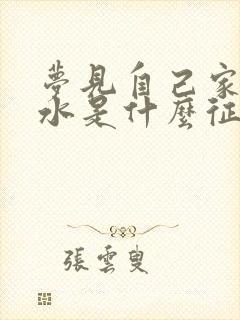 夢見自己家
水是什麼征
張雲叟